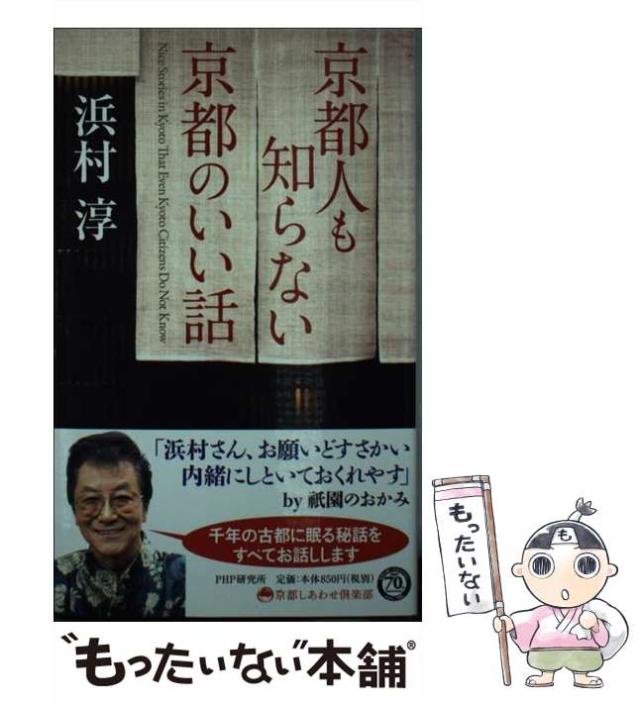 京都人も
知らない
京都のいい話
Nice Stories in Kyoto That Even Kyoto Citizens Do Not Know
浜村 淳
「浜村さん、お願いどすさかい
内緒にしといておくれやす」
by 祇園のおかみ
千年の古都に眠る秘話を
すべてお話しします
PHP研究所 定価:本体850円(税別)
京都しあわせ倶楽部
70
“もったいない”本舗®
もったいない
も